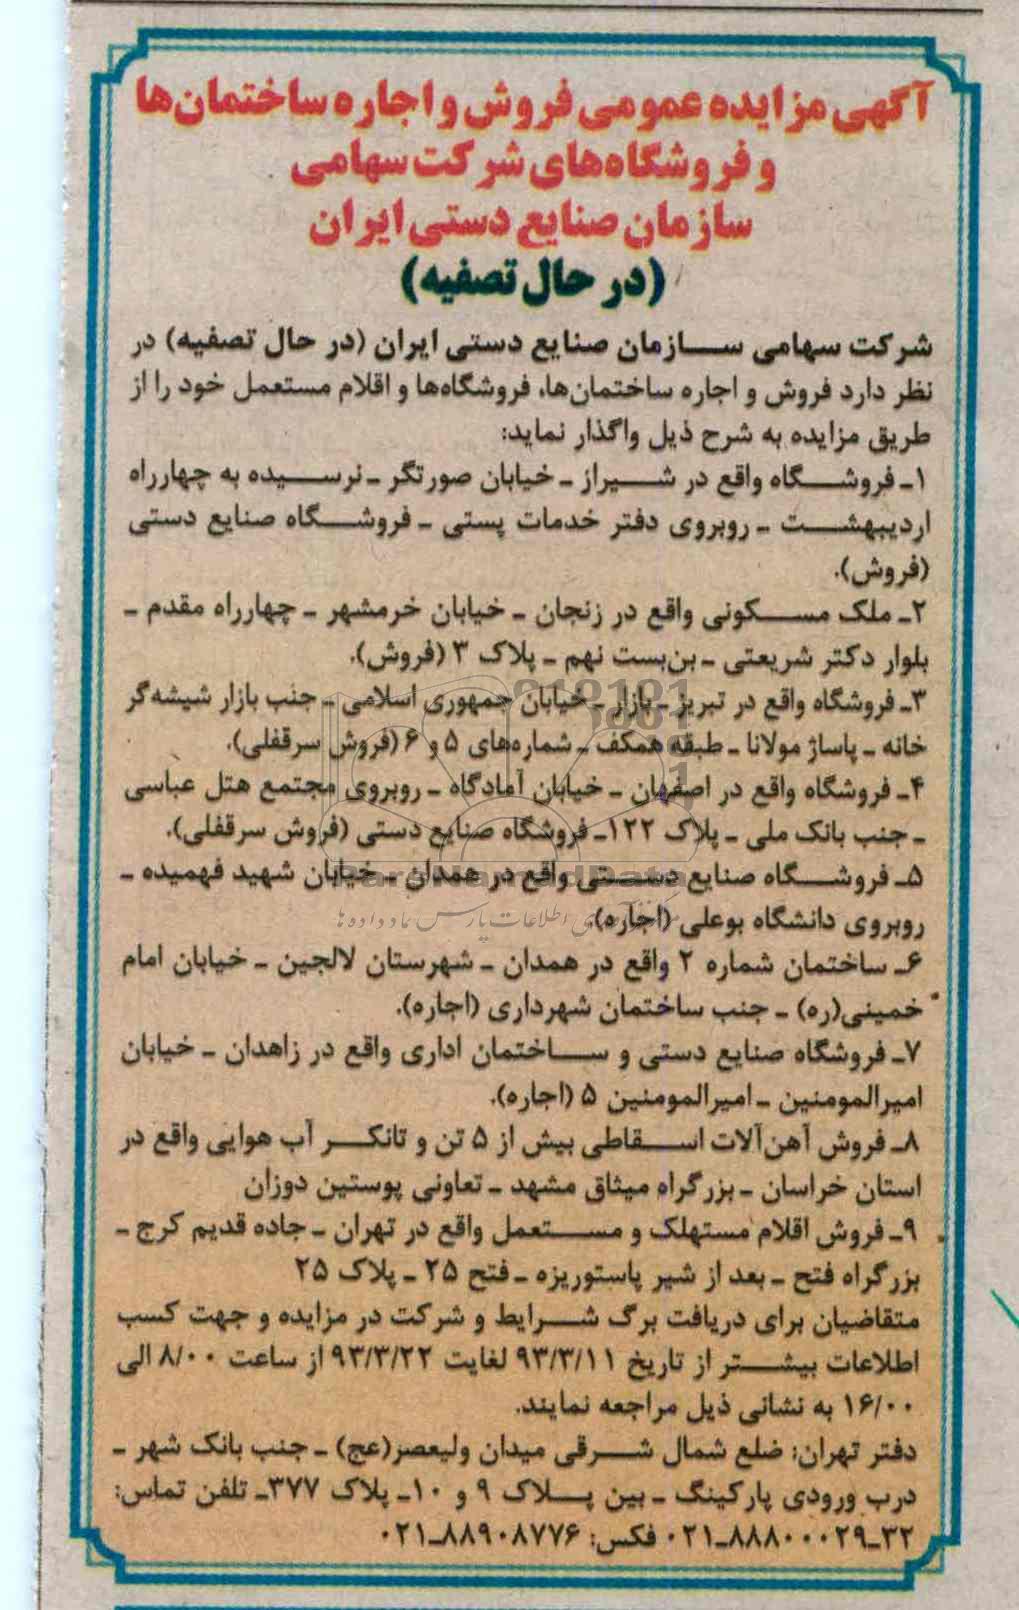 آگهی مزایده عمومی فروش و اجاره ساختمان‌ها
و فروشگاه‌های شرکت سهامی
سازمان صنایع دستی ایران
(در حال تصفیه)
شرکت سهامی سازمان صنایع دستی ایران (در حال تصفیه) در
نظر دارد فروش و اجاره ساختمان‌ها، فروشگاه‌ها و اقلام مستعمل خود را از
طریق مزایده به شرح ذیل واگذار نماید:
۱ـ فروشگاه واقع در شیراز ـ خیابان صورتگر ـ نرسیده به چهارراه
اردیبهشت ـ روبروی دفتر خدمات پستی ـ فروشگاه صنایع دستی
(فروش).
۲ـ ملک مسکونی واقع در زنجان ـ خیابان خرمشهر ـ چهارراه مقدم ـ
بلوار دکتر شریعتی ـ بن‌بست نهم ـ پلاک ۳ (فروش).
۳ـ فروشگاه واقع در تبریز ـ بازار ـ خیابان جمهوری اسلامی ـ جنب بازار شیشه‌گر
خانه ـ پاساژ مولانا ـ طبقه همکف ـ شماره‌های ۵ و ۶ (فروش سرقفلی).
۴ـ فروشگاه واقع در اصفهان ـ خیابان آمادگاه ـ روبروی مجتمع هتل عباسی
ـ جنب بانک ملی ـ پلاک ۱۲۲ـ فروشگاه صنایع دستی (فروش سرقفلی).
۵ـ فروشگاه صنایع دستی واقع در همدان ـ خیابان شهید فهمیده ـ
روبروی دانشگاه بوعلی (اجاره).
۶ـ ساختمان شماره ۲ واقع در همدان ـ شهرستان لالجین ـ خیابان امام
خمینی(ره) ـ جنب ساختمان شهرداری (اجاره).
۷ـ فروشگاه صنایع دستی و ساختمان اداری واقع در زاهدان ـ خیابان
امیرالمومنین ـ امیرالمومنین ۵ (اجاره).
۸ـ فروش آهن‌آلات اسقاطی بیش از ۵ تن و تانکر آب هوایی واقع در
استان خراسان ـ بزرگراه میثاق مشهد ـ تعاونی پوستین دوزان
۹ـ فروش اقلام مستهلک و مستعمل واقع در تهران ـ جاده قدیم کرج ـ
بزرگراه فتح ـ بعد از شیر پاستوریزه ـ فتح ۲۵ ـ پلاک ۲۵
متقاضیان برای دریافت برگ شرایط و شرکت در مزایده و جهت کسب
اطلاعات بیشتر از تاریخ ۹۳/۳/۱۱ لغایت ۹۳/۳/۲۲ از ساعت ۸/۰۰ الی
۱۶/۰۰ به نشانی ذیل مراجعه نمایند.
دفتر تهران: ضلع شمال شرقی میدان ولیعصر(عج) ـ جنب بانک شهر ـ
درب ورودی پارکینگ ـ بین پلاک ۹ و ۱۰ـ پلاک ۳۷۷ـ تلفن تماس:
۳۲ـ۸۸۸۰۰۰۲۹ـ۰۲۱ فکس: ۸۸۹۰۸۷۷۶ـ۰۲۱
ParsNamadData